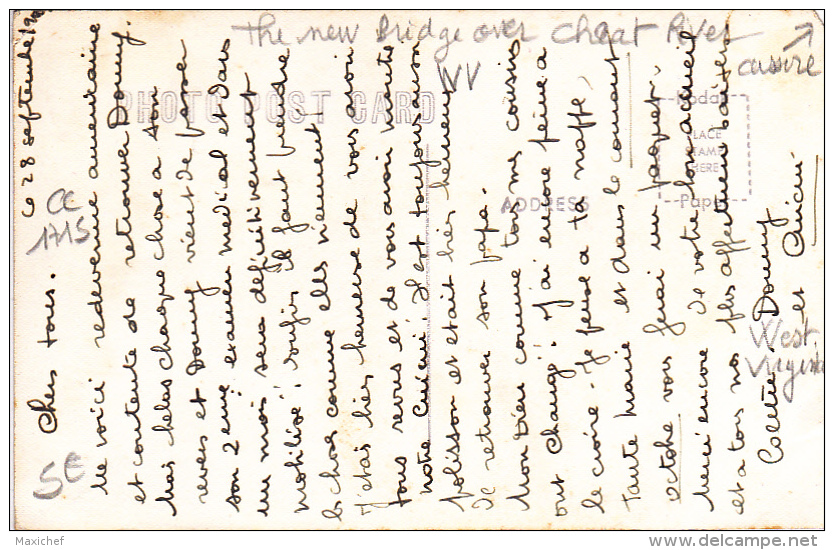 The new Bridge over Cheat River
WV
cassure
PHOTO POST CARD
ADDRESS
Kodak
PLACE
STAMP
HERE
Paper
CC
1715
5€
West
Virginia
le 28 septembre
Chers tous.
Me voici redevenue américaine
et contente de retrouver Donny.
Mais helas chaque chose a son
revers et Donny vient de passer
son 2ème examen medical et dans
un mois sera définitivement
mobilisé!! Enfin il faut prendre
les choses comme elles viennent
J'étais bien heureuse de vous avoir
tous revus et de vous avoir montré
notre Cricri. Il est toujours aussi
polisson et était bien heureux
de retrouver son papa.
Mon Dieu comme tous mes cousins
ont changé!! J'ai encore peine a
le croire. Je pense a ta nappe,
Tante Marie et dans le courant
octobre vous ferai un paquet.
Merci encore de votre bon accueil
et a tous nos plus affectueux baisers
Colette, Donny
et Cricri
Maxichef
www.delcampe.net